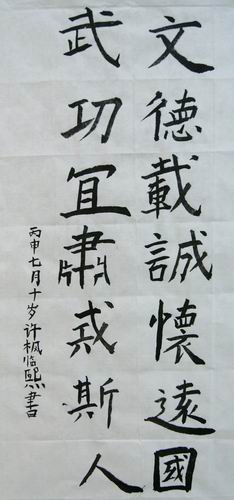 文德載誠懷遠國
武功宜肅戎斯人
丙申七月十岁许枫临熙書